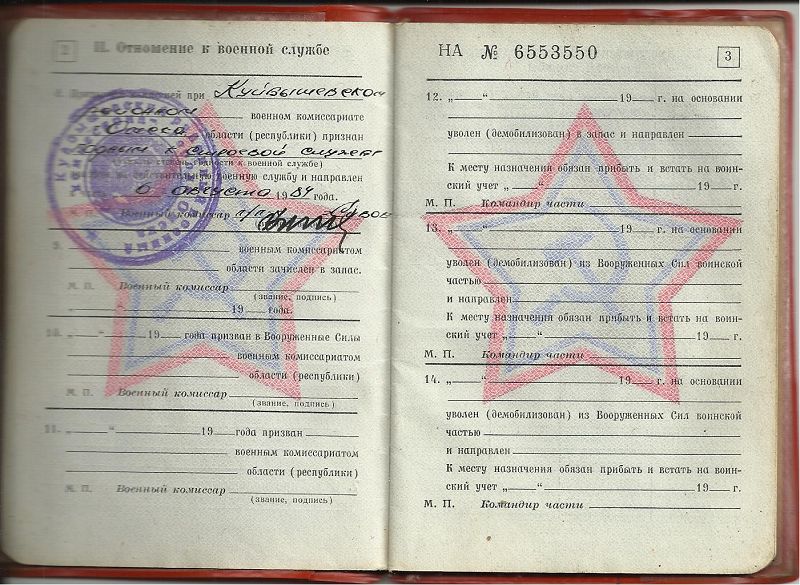 2
II. Отношение к военной службе
8. Призывной комиссией при Куйбышевском
районном военном комиссариате
г. Одесса области (республики) признан
годным к строевой службе
(указать степень годности к военной службе)
призван на действительную военную службу и направлен
6 августа 1984 года.
Военный комиссар п/п
9.
военным комиссариатом
области зачислен в запас.
М. П. Военный комиссар
(звание, подпись)
„ “ 19 года.
10. „ “ 19 года призван в Вооруженные Силы
военным комиссариатом
области (республики)
М. П. Военный комиссар
(звание, подпись)
11. „ “ 19 года призван
военным комиссариатом
области (республики)
М. П. Военный комиссар
(звание, подпись)
НА № 6553550
3
12. „ “ 19 г. на основании
уволен (демобилизован) в запас и направлен
К месту назначения обязан прибыть и встать на воин-
ский учет „ “ 19 г.
М. П. Командир части
13. „ “ 19 г. на основании
уволен (демобилизован) из Вооруженных Сил воинской
частью
и направлен
К месту назначения обязан прибыть и встать на воин-
ский учет „ “ 19 г.
М. П. Командир части
14. „ “ 19 г. на основании
уволен (демобилизован) из Вооруженных Сил воинской
частью
и направлен
К месту назначения обязан прибыть и встать на воин-
ский учет „ “ 19 г.
М. П. Командир части